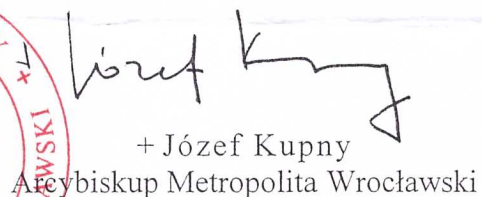 + Józef K
+ Józef Kupny
Arcybiskup Metropolita Wrocławski
AWSKI